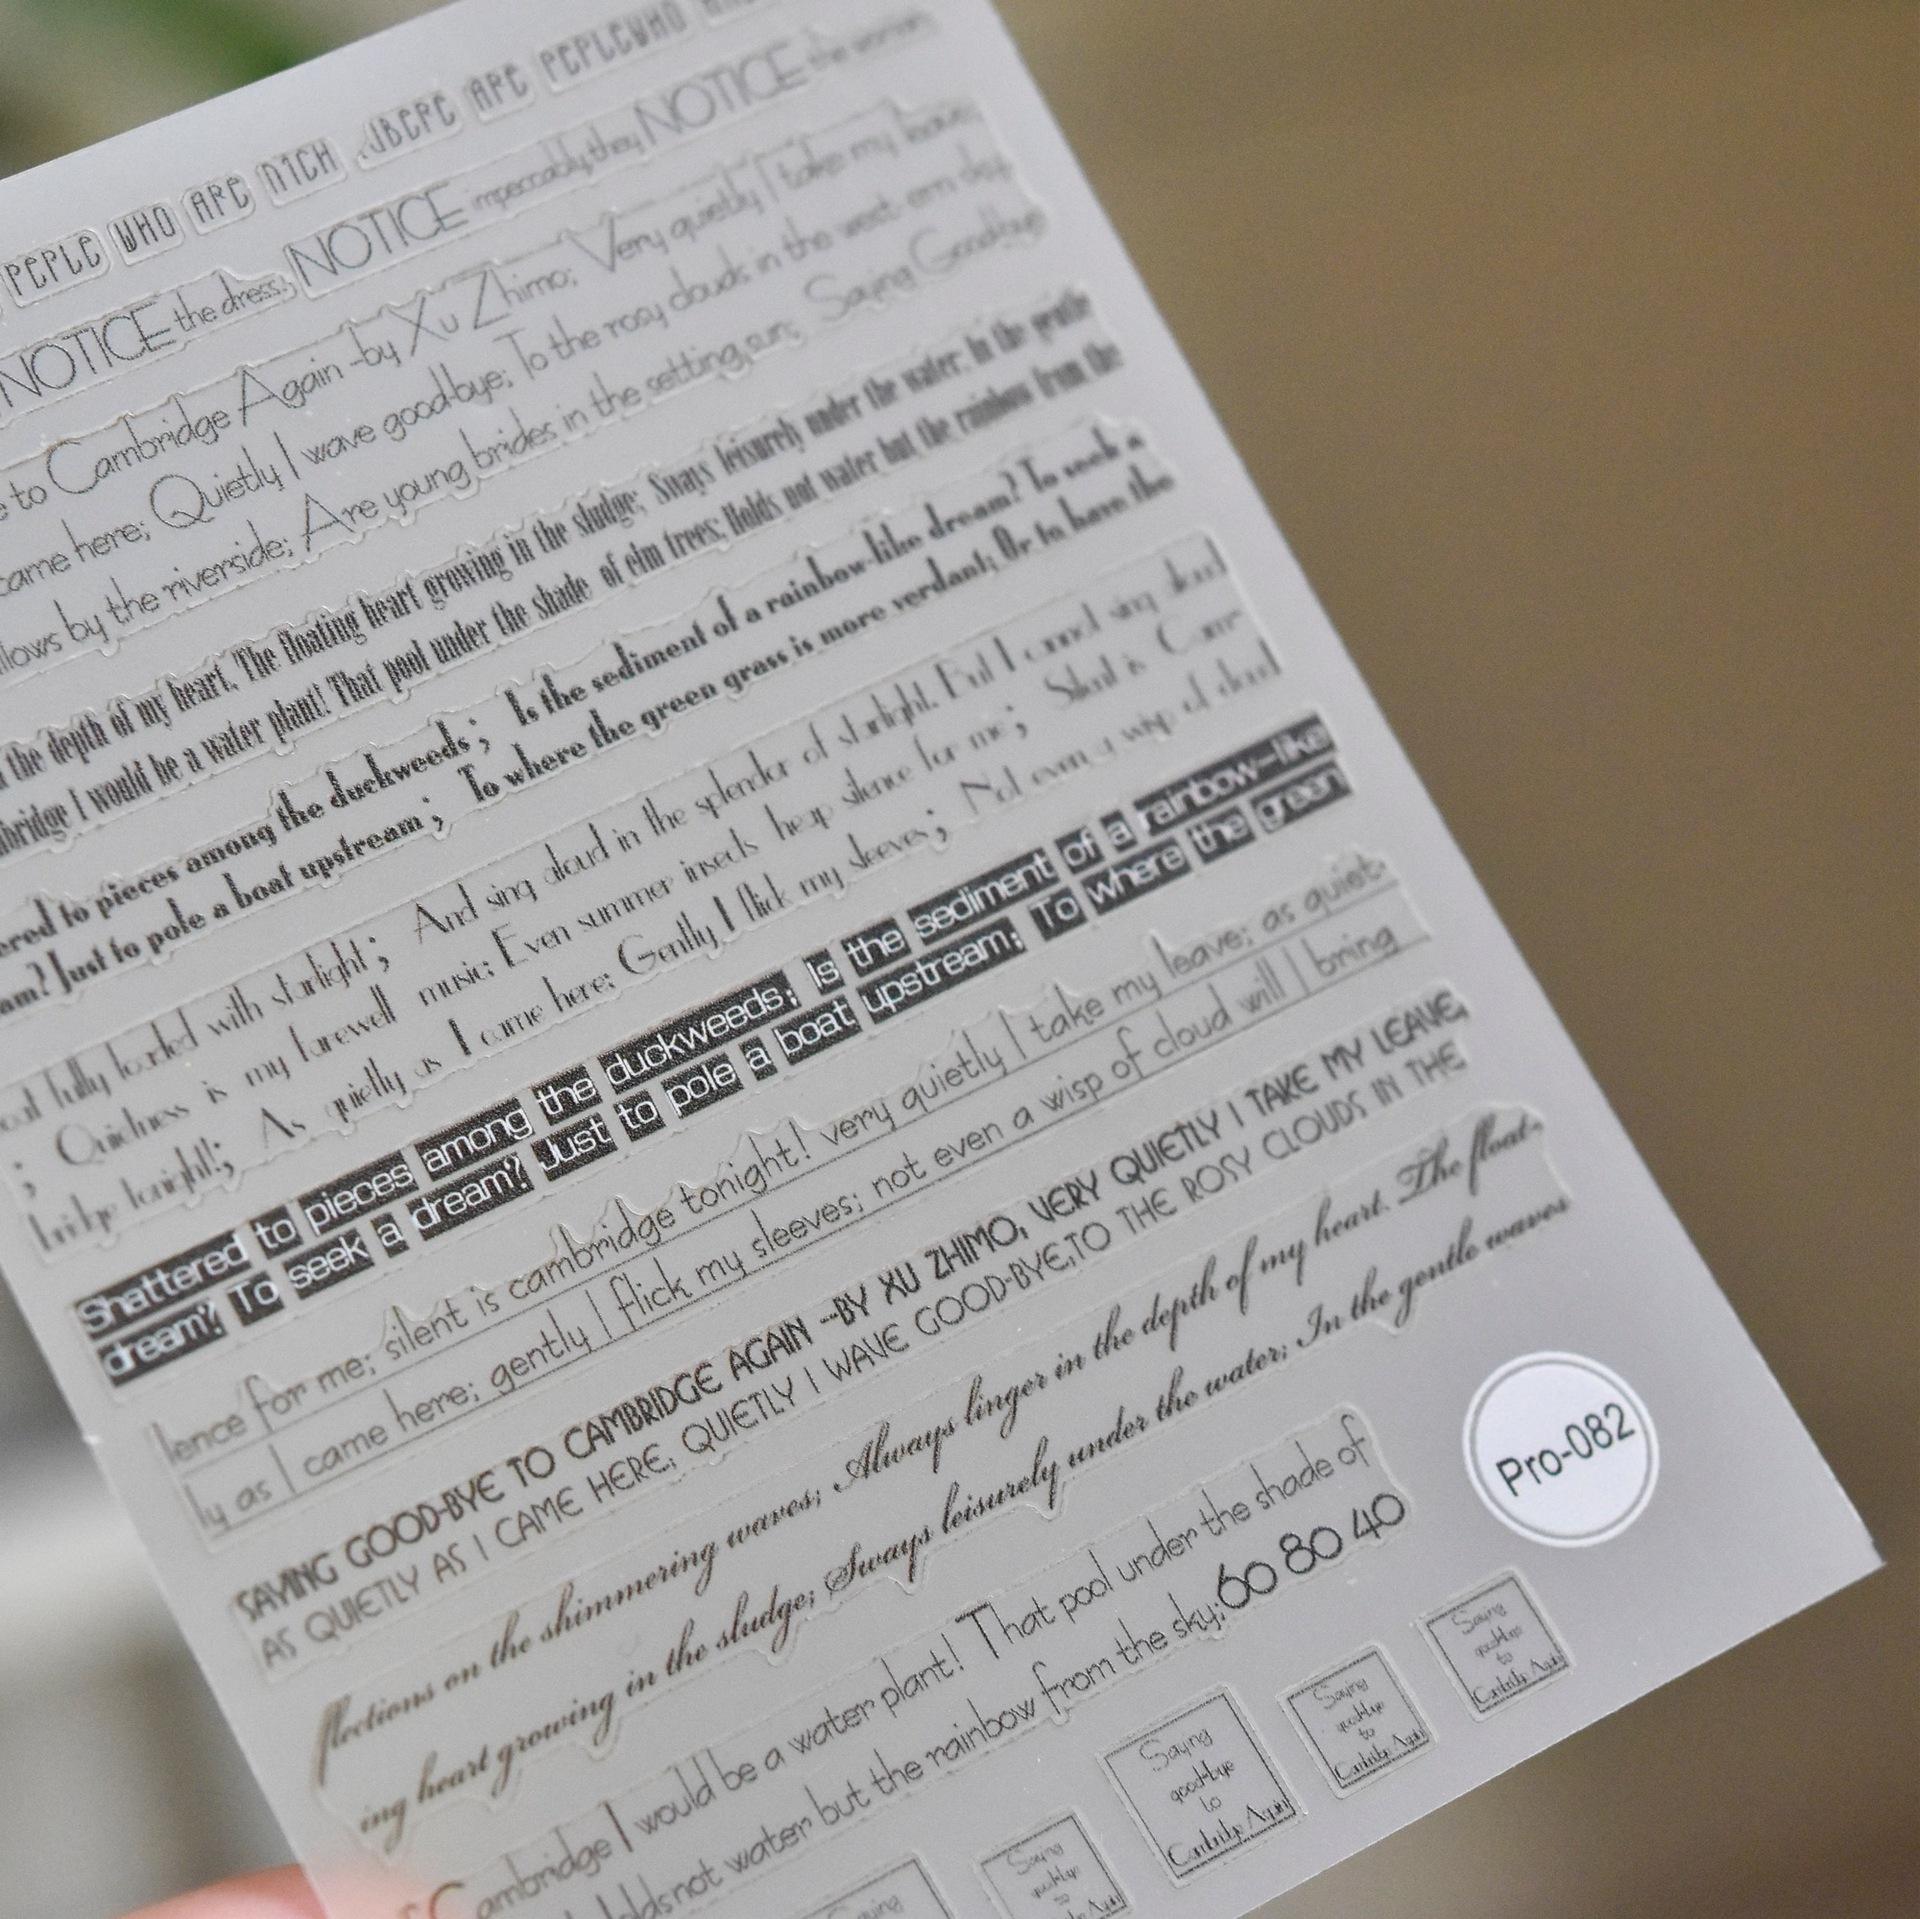 PEPLE WHO ARE NICH JBEPE APE PEPLEWHO
NOTICE the dress; NOTICE impeccably, they NOTICE the woman
to Cambridge Again -by Xu Zhimo; Very quietly I take my leave;
came here; Quietly I wave good-bye; To the rosy clouds in the west ern sky.
llows by the riverside; Are young brides in the setting sun; Saying Goodbye
the depth of my heart. The floating heart growing in the sludge; Sways leisurely under the water: In the gentle
mbridge I would be a water plant! That pool under the shade of elm trees; Holds not water but the rainbow from the
ered to pieces among the duckweeds; Is the sediment of a rainbow-like dream? To seek a
am? Just to pole a boat upstream; To where the green grass is more verdant; Or to have the
oat fully loaded with starlight; And sing aloud in the splendor of starlight. But I cannot sing aloud
; Quietness is my farewell music; Even summer insects heap silence for me; Silent is Cam-
bridge tonight!; As quietly as I came here; Gently I flick my sleeves; Not even a wisp of cloud
Shattered to pieces among the duckweeds; Is the sediment of a rainbow-like
dream? To seek a dream? Just to pole a boat upstream; To where the green
lence for me; silent is cambridge tonight! very quietly I take my leave; as quiet-
ly as I came here; gently I flick my sleeves; not even a wisp of cloud will I bring
SAYING GOOD-BYE TO CAMBRIDGE AGAIN --BY XU ZHIMO, VERY QUIETLY I TAKE MY LEAVE,
AS QUIETLY AS I CAME HERE, QUIETLY I WAVE GOOD-BYE,TO THE ROSY CLOUDS IN THE
flections on the shimmering waves; Always linger in the depth of my heart. The float-
ing heart growing in the sludge; Sways leisurely under the water; In the gentle waves
f Cambridge I would be a water plant! That pool under the shade of
oldsnot water but the rainbow from the sky; 60 80 40
Pro-082
Saying
good-bye
to
Cambridge Again
Saying
good-bye
to
Cambridge Again
Saying
good-bye
to
Cambridge Again
Saying
good-bye
to
Saying